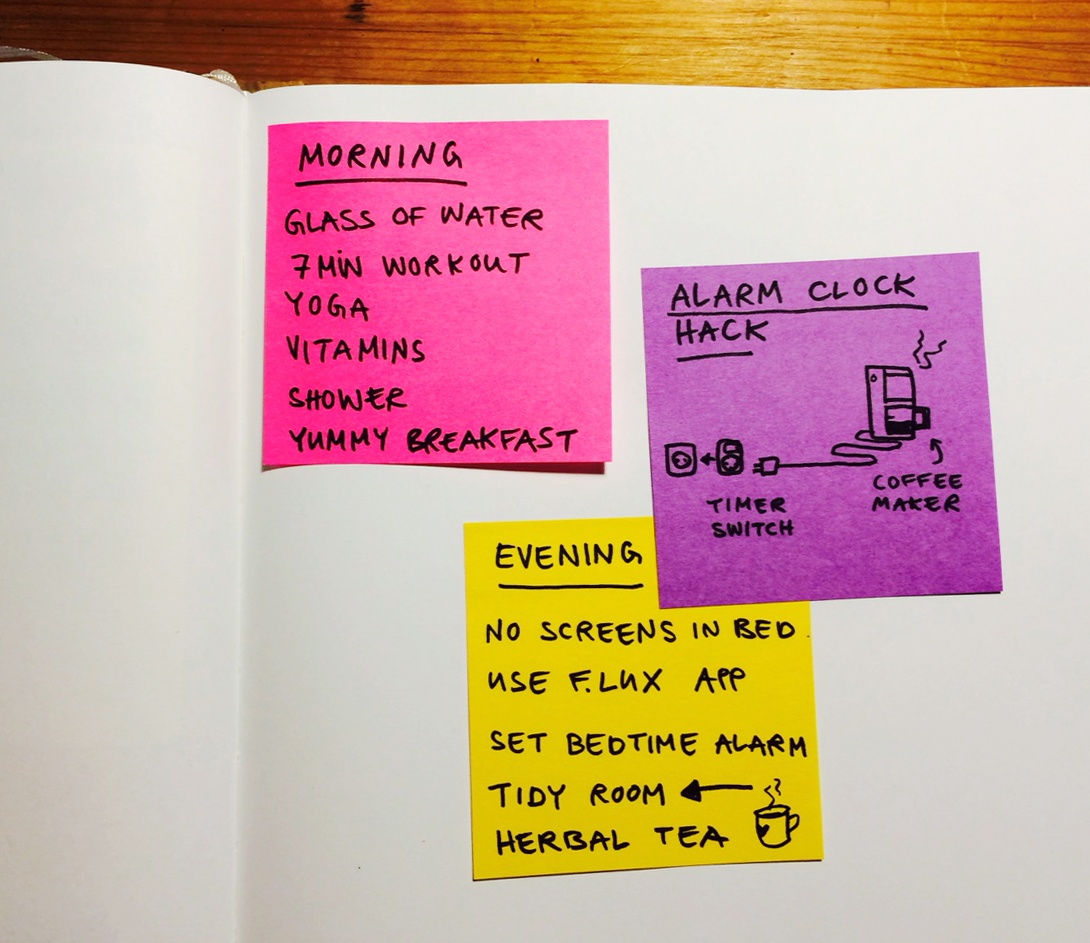 MORNING
GLASS OF WATER
7 MIN WORKOUT
YOGA
VITAMINS
SHOWER
YUMMY BREAKFAST
ALARM CLOCK
HACK
COFFEE
MAKER
TIMER
SWITCH
EVENING
NO SCREENS IN BED
USE F.LUX APP
SET BEDTIME ALARM
TIDY ROOM
HERBAL TEA